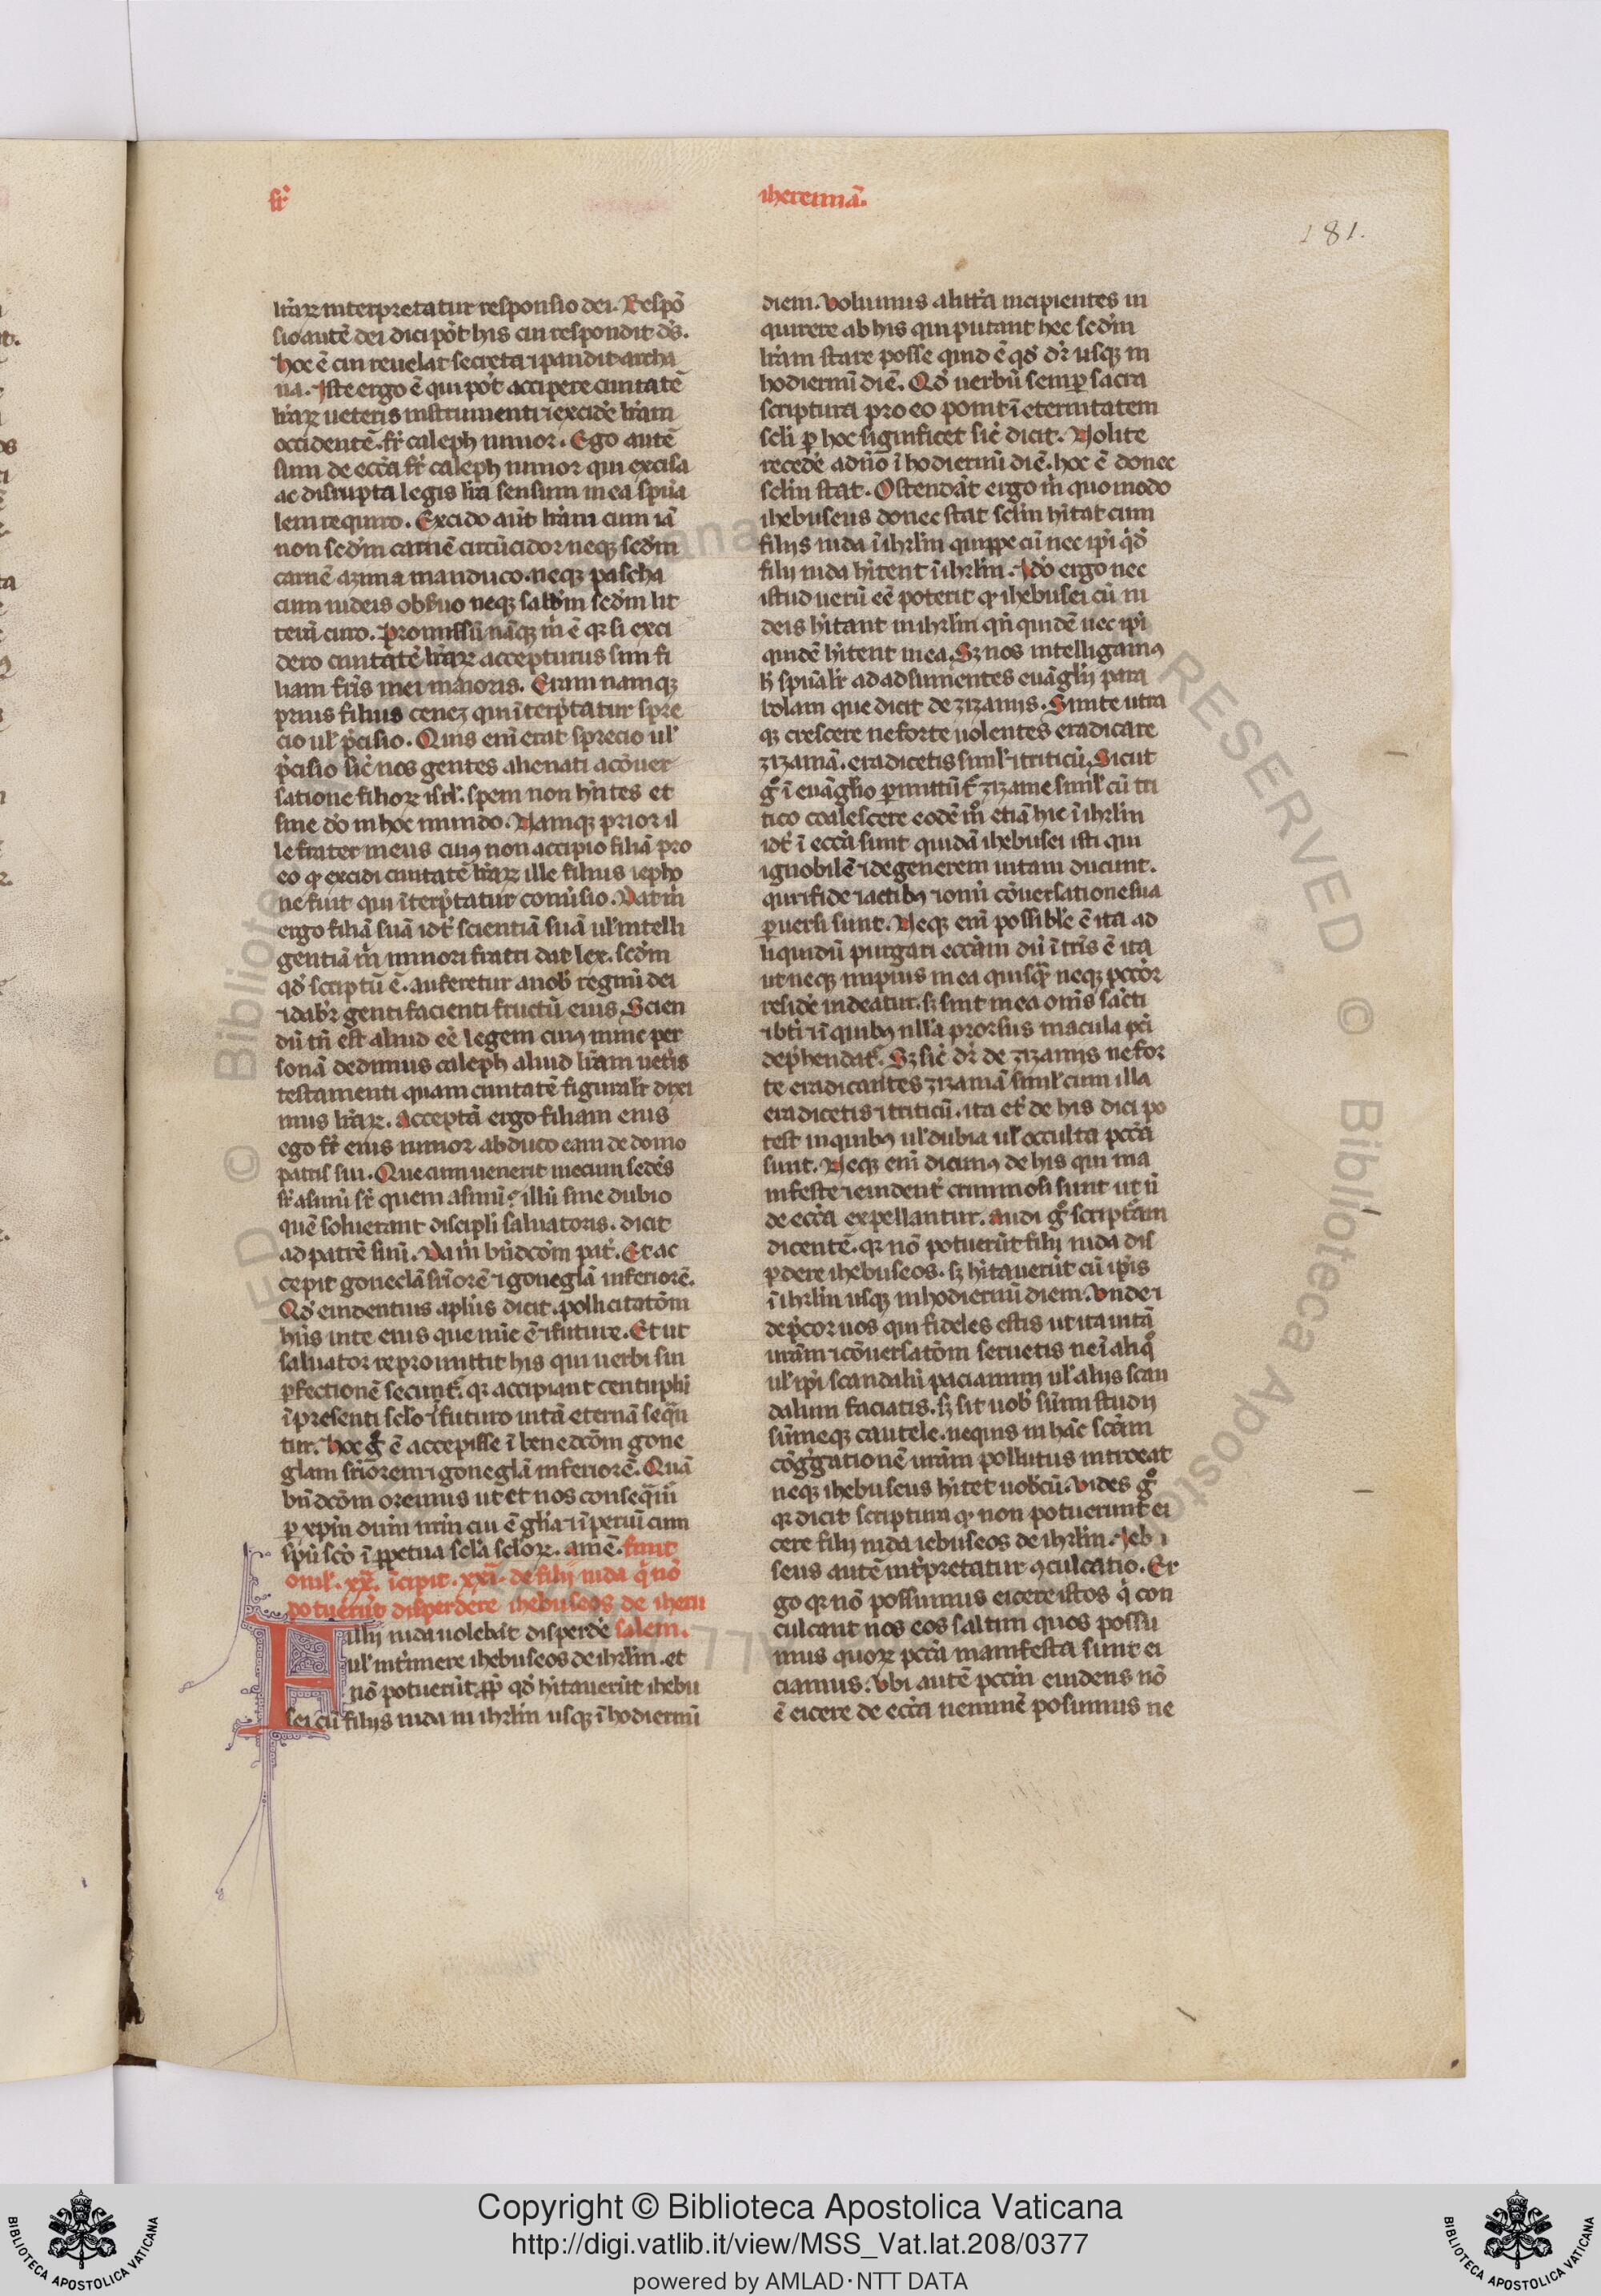 sr̄
iheremiā.
181.
lr̄aꝝ interpretatur responsio dei. Respō
sio autē dei dici pōt his cui respondit ds̄.
hoc ē cui reuelat secreta ⁊ pandit archa
na. Iste ergo ē qui pōt accipere ciuitatē
lr̄aꝝ ueteris instrumenti ⁊ excide lr̄am
occidentē. fr̄ caleph minor. Ego autē
sum de eccā fr̄ caleph minor qui excisa
ac disrupta legis lr̄a sensum in ea spūa
lem requiro. Excido aūt lr̄am cum iā
non sedm̄ carnē circūcidor neqꝫ sedm̄
carnē azima manduco. neqꝫ pascha
cum iudeis obs̄uo neqꝫ sabbm̄ sedm̄ lit
terā curo. Promissū nāqꝫ m̄ ē qꝛ si exci
dero ciuitatē lr̄aꝝ accepturus sum fi
liam fr̄is mei maioris. Eram namqꝫ
prius filius cenez qui īterp̄tatur spre
cio ul̄ p̄cisio. Quis eni erat sprecio ul̄
p̄cisio sic̄ nos gentes alienati a cōuer
satione filioꝝ isrl̄. spem non hn̄tes et
sine dō in hoc mundo. Namqꝫ prior il
le frater meus cuiꝰ non accipio filiā pro
eo ꝙ excidi ciuitatē lr̄aꝝ ille filius ieꝑho
ne fuit qui īterp̄tatur cōuisio. Dat m̄
ergo filiā suā idt̄ scientiā suā ul̄ intelli
gentiā m̄ minori fratri dat lex. sedm̄
qd̄ scriptū ē. auferetur a nob̄ regnū dei
⁊ dabr̄ genti facienti fructū eius. Scien
dū tn̄ est aliud eē legem cuiꝰ nunc per
sonā dedimus caleph aliud lr̄am uetis
testamenti quam ciuitatē figuralr̄ dixi
mus lr̄aꝝ. Acceptā ergo filiam eius
ego fr̄ eius minor abduco eam de domo
patris sui. Que cum uenerit mecum sedēs
sr̄ asinū sr̄ quem asinū? illū sine dubio
quē soluerant discipli saluatoris. dicit
ad patrē suū. Da m̄ bn̄dcōm pat̄. Et ac
cepit goneclā sr̄iorē ⁊ goneglā inferiorē.
Qd̄ euidentius aplūs dicit. pollicitatōm
hn̄s uite eius que nūc ē ⁊ future. Et ut
saluator repromittit his qui uerbi sui
ꝑfectionē secunt̄. qꝛ accipiant centupli
ī presenti sclō ⁊ ī futuro uitā eternā sequn̄
tur. Hoc gͦ ē accepisse ī benedcōm gone
glam sr̄iorem ⁊ goneglā inferiorē. Quā
bn̄dcōm oremus ut et nos conseqm̄
ꝑ xpm̄ dnm̄ nrm̄ cui ē glia ⁊ īperiū cum
spū scō ī ꝑpetua scla scloꝝ. amē. finit
omil̄. xx̄. īcipit. xxī. de filii iuda q̄ nō
potuerūt disperdere ihebuseos de iheru
Filii iuda uolebāt disperde salem.
ul̄ int̄imere ihebuseos de ihrlm̄. et
nō potuerūt. ꝓꝑ qd̄ hītauerūt ihebu
sei cū filiis iuda in ihrlm̄ usqꝫ ī hodiernū
diem. Volumus alitr̄a incipientes in
quirere ab his qui putant hec sedm̄
lr̄am stare posse quid ē qd̄ dr̄ usqꝫ in
hodiernū diē. Qd̄ uerbū semꝑ sacra
scriptura pro eo ponit ī eternitatem
scli ꝑ hoc significet sic̄ dicit. Nolite
recede a dn̄o ī hodiernū diē. hoc ē donec
sclm stat. Ostendāt ergo m̄ quomodo
ihebuseus donec stat sclm hītat cum
filiis iuda ī ihrlm̄ quippe cū nec ip̄i qd̄
filii iuda hītent ī ihrlm̄. Idō ergo nec
istud uerū eē poterit ꝙ ihebusei cū iu
deis hītant in ihrlm̄ qn̄ quidē nec ip̄i
quidē hītent in ea. Sꝫ nos intelligamꝰ
h̄ spūalr̄ ad adsumentes euāglii para
bolam que dicit de zizaniis. Sinite utra
qꝫ crescere ne forte uolentes eradicare
zizaniā. eradicetis siml̄ ⁊ triticū. Sicut
gͦ ī euāglio ꝑmittūt̄ zizanie siml̄ cū tri
tico coalescere eodē mͦ etiā hic ī ihrlm̄
idt̄ ī eccā sunt quidā ihebusei isti qui
ignobilē ⁊ degenerem uitam ducunt.
qui ⁊ fide ⁊ actibꝰ ⁊ omī cōuersatione sua
ꝑuersi sunt. Neqꝫ eni possibl̄e ē ita ad
liquidū purgari eccām dū ī tris ē ita
ut neqꝫ impius in ea quisq̄ neqꝫ pccōr
reside uideatur. sꝫ sint in ea om̄s sācti
⁊ bt̄i ⁊ ī quibꝰ nlla prorsus macula pcī
dep̄hendat̄. Sꝫ sic̄ dr̄ de zizaniis ne for
te eradicantes zizaniā siml̄ cum illa
eradicetis ⁊ triticū. ita et̄ de his dici po
test in quibꝰ ul̄ dubia ul̄ occulta pccā
sunt. Neqꝫ eni dicimꝰ de his qui ma
nifeste ⁊ euident̄ criminosi sunt ut n̄
de eccā expellantur. Audi gͦ scriptām
dicentē. qꝛ nō potuerūt filii iuda dis
ꝑdere ihebuseos. sꝫ hītauerūt cū ip̄is
ī ihrlm̄ usqꝫ in hodiernū diem. Vnde ⁊
dep̄cor uos qui fideles estis ut ita uitā
urām ⁊ cōuersatōm seruetis ne ī aliqͦ
ul̄ ip̄i scandali paciamini ul̄ aliis scan
dalum faciatis. sꝫ sit uob̄ sūmi studii
sūmeqꝫ cautele. nequis in hāc scām
cōggationē urām pollutus introeat
neqꝫ ihebuseus hītet uobcū. Vides gͦ
qꝛ dicit scriptura ꝙ non potuerunt ei
cere filii iuda iebuseos de ihrlm̄. Iebu
seus autē int̄pretatur ꝯculcatio. Er
go qꝛ nō possumus eicere istos q̄ con
culcant nos eos saltim quos possu
mus quoꝝ pccā manifesta sunt ei
ciamus. Vbi autē pccm̄ euidens nō
ē eicere de eccā neminē posumus ne
Copyright © Biblioteca Apostolica Vaticana
http://digi.vatlib.it/view/MSS_Vat.lat.208/0377
powered by AMLAD·NTT DATA
BIBLIOTECA APOSTOLICA VATICANA
BIBLIOTECA APOSTOLICA VATICANA